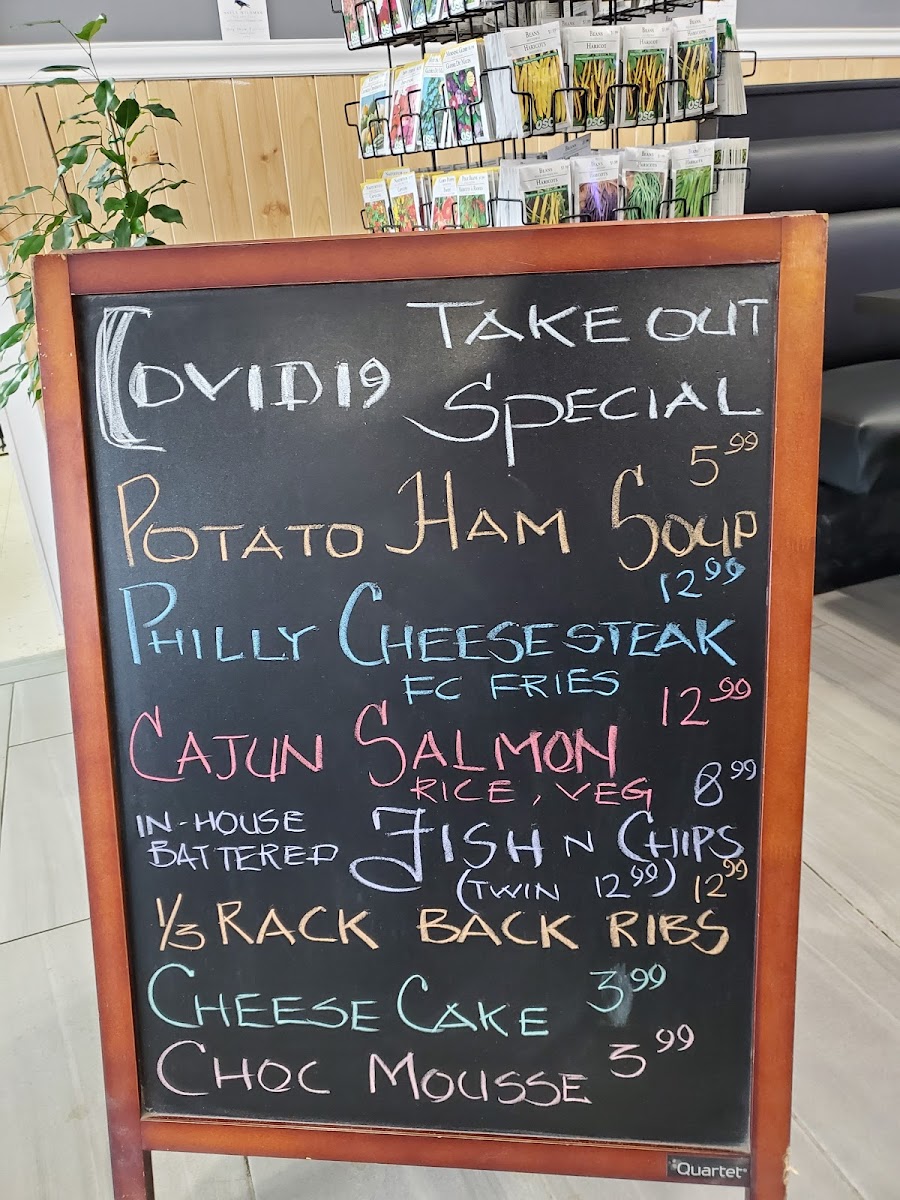 BEANS
HARICOTS
BEANS
HARICOT
BEANS
HARICOTS
BEANS
HARICOTS
OSC
OSC
TAKE OUT
COVID19
SPECIAL
5.99
POTATO HAM SOUP
12.99
PHILLY CHEESESTEAK
FC FRIES
12.99
CAJUN SALMON
RICE, VEG
8.99
IN-HOUSE
BATTERED
FISH N CHIPS
(TWIN 12.99)
12.99
1/3 RACK BACK RIBS
CHEESE CAKE 3.99
CHOC MOUSSE 3.99
Quartet